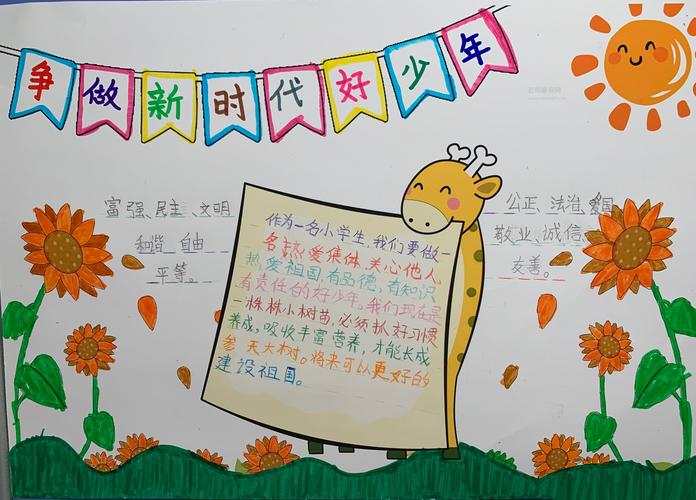 争做新时代好少年
富强、民主、文明
和谐 自由
平等。
公正、法治、爱国
敬业、诚信、
友善。
作为一名小学生,我们要做一
名热爱集体,关心他人,
热爱祖国,有品德,有知识
有责任的好少年。我们现在是
一株株小树苗,必须从好习惯
养成,吸收丰富营养,才能长成
参天大树。将来可以更好的
建设祖国。